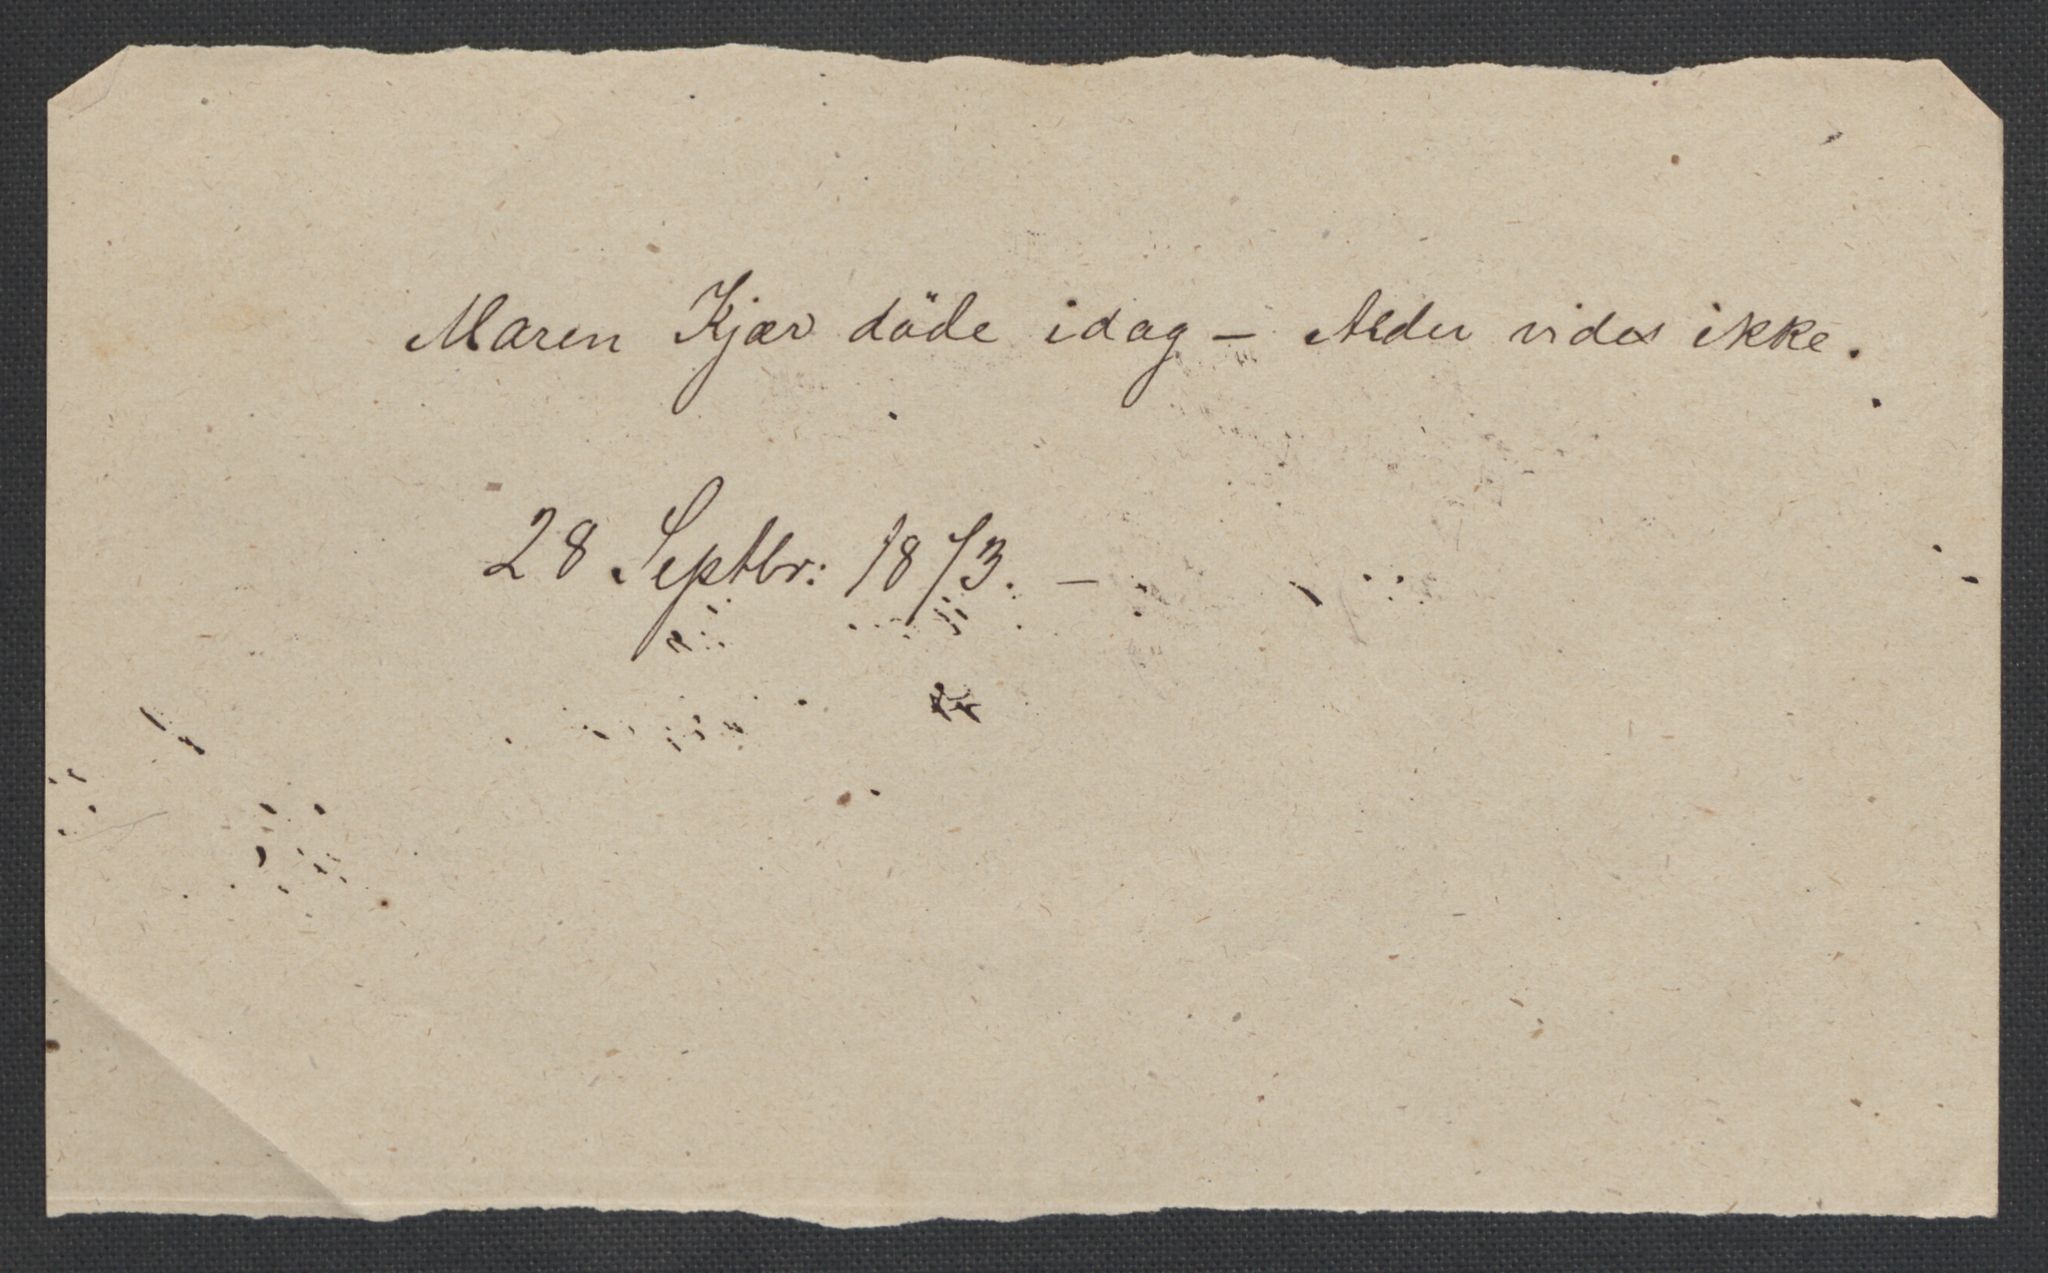 Maren Kjær döde idag - Alder vides ikke.
28 Septbr: 1873. -